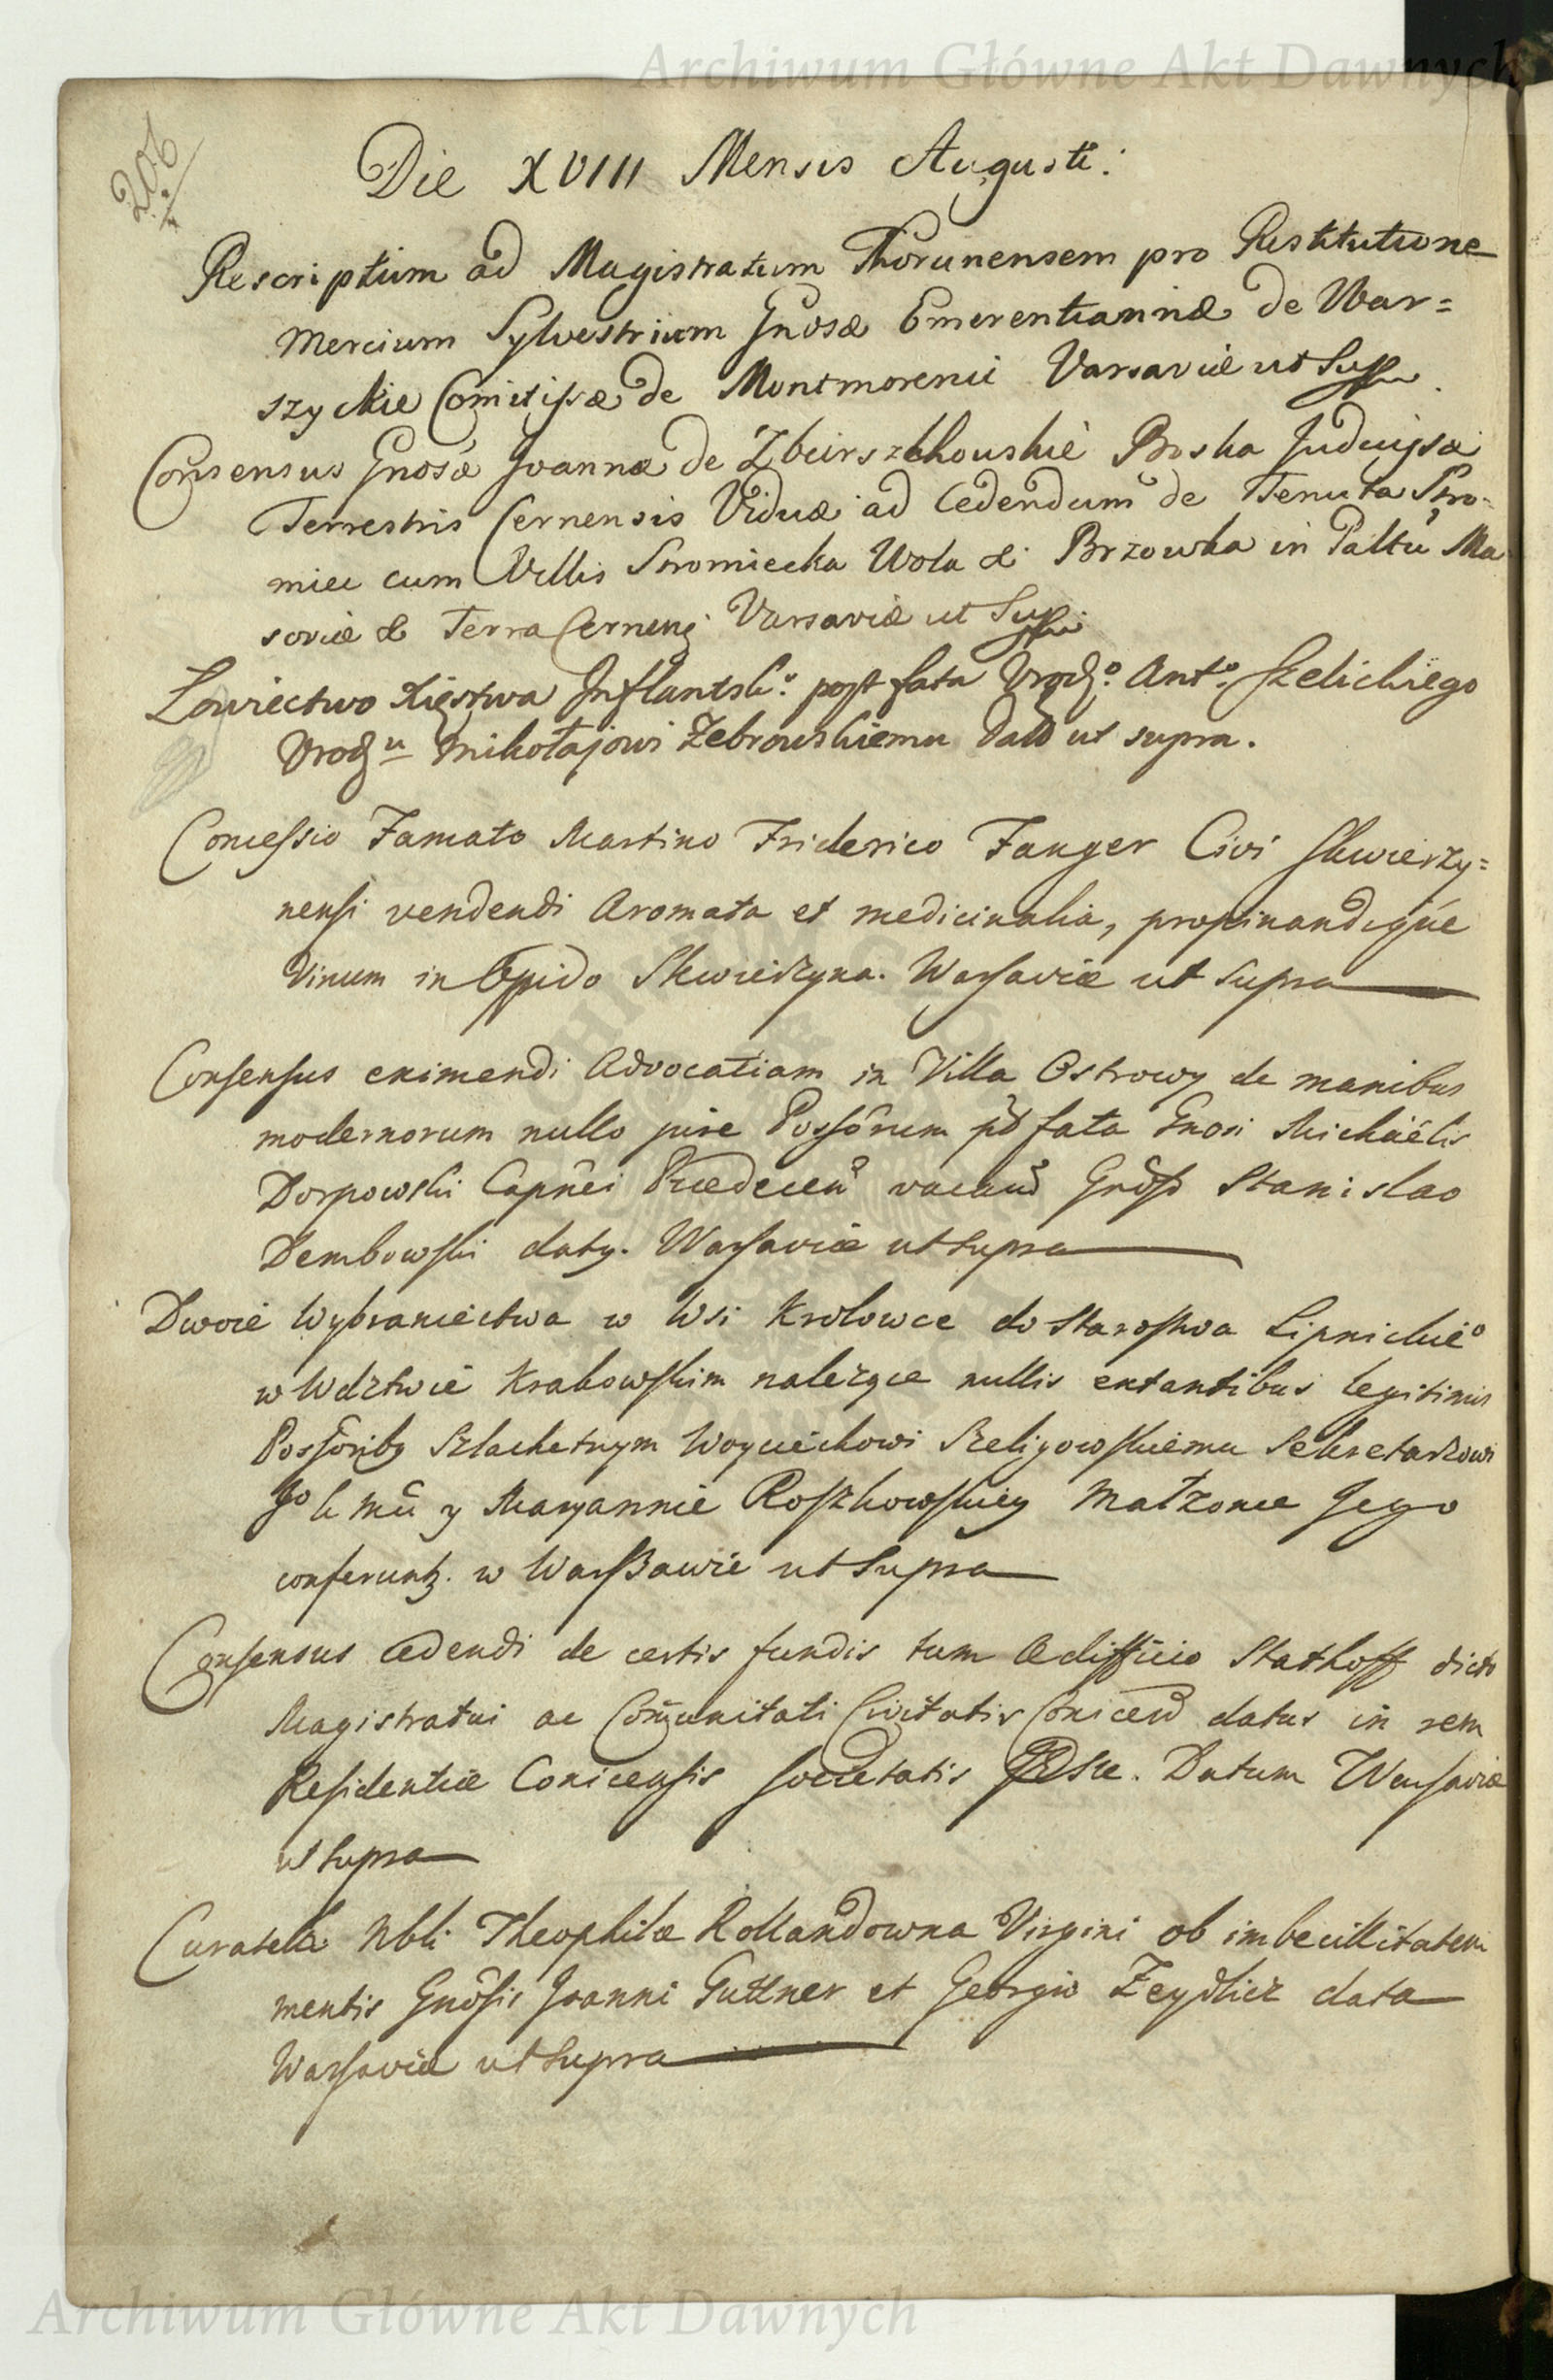 Archiwum Główne Akt Dawnych
206
Die XVIII Mensis Augusti:
Rescriptum ad Magistratum Thorunensem pro Restitutione
Mercium Sylvestrium Gnosæ Emerentiannæ de War=
szyckie Comitissæ de Montmorenii Varsaviæ ut Supra.
Consensus Gnosæ Joannæ de Zbierszkhouskie Boska Judicissæ
Terrestris Cernensis Viduæ ad Cedendum de Tenuta Stro-
miec cum Villis Stromiecka Wola & Brzowka in Palttu Ma
soviæ & Terra Cernensi Varsaviæ ut Supra
Łowiectwo Xięstwa Inflantsko. post fata Urodzo. Anto. Szelickiego
Urodzu Mikołajowi Zebrowskiemu Datt ut supra.
Concessio Famato Martino Friderico Fanger Civi Skwierzy=
nensi vendendi Aromata et medicinalia, propinandiqúe
Vinum in Oppido Skwierzyna. Warsaviæ ut Supra
Consensus eximendi Advocatiam in Villa Ostrowy de manibus
modernorum nullo jure Possorum pt fata Gnosi Michaëlis
Dorpowski Capnei Przedecen vacand Gnoso Stanislao
Dembowski daty. Warsaviæ ut Supra
Dwoie Wybraniectwa w Wsi Krolowce do Starostwa Lipnickieo
w Wdztwie Krakowskim nalezące nullis extantibus legitimis
Possoriby Szlachetnym Woyciechowi Szeligowskiemu Sekretarzowi
Jo k Mci y Maryannie Roszkowskiey Małzonce Jego
conferuntz. w Warszawie ut Supra
Consensus cedendi de certis fundis tum Ædifficio Stathoff dicto
Magistratui ac Comunitati Civitatis Conicen datus in rem
Residentiæ Conicensis Societatis JEsu. Datum Warsaviæ
ut Supra
Curatela Nbli Theophilæ Rollandowna Virgini ob imbecillitatem
mentis Gnosis Joanni Guttner et Georgio Zeydlicz data
Warsaviæ ut Supra
Archiwum Główne Akt Dawnych